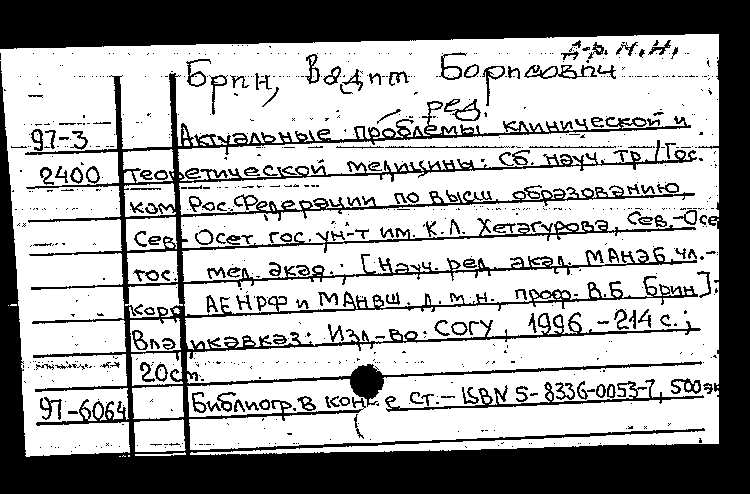 д-р. м.н.
Брин, Вадим Борисович
ред.
97-3 Актуальные проблемы клинической и
2400 теоретической медицины: Сб. науч. тр./Гос.
ком. Рос. Федерации по высш. образованию,
Сев.-Осет. гос. ун-т им. К.Л. Хетагурова, Сев.-Осе
гос. мед. акад.; [Науч. ред. акад. МАНЭБ, чл.-
корр. АЕНРФ и МАНВШ, д.м.н., проф. В.Б. Брин].
Владикавказ: Изд-во: СОГУ, 1996.-214 с.;
20см.
97-6064 Библиогр. в конце ст.- ISBN 5-8336-0053-7, 500эк